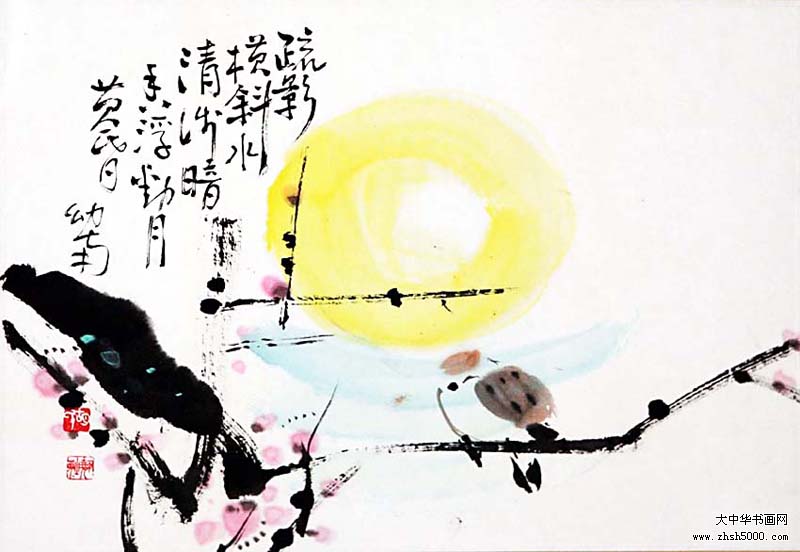 疏影
横斜水
清浅暗
香浮動月
黄昏
大中华书画网
www.zhsh5000.com